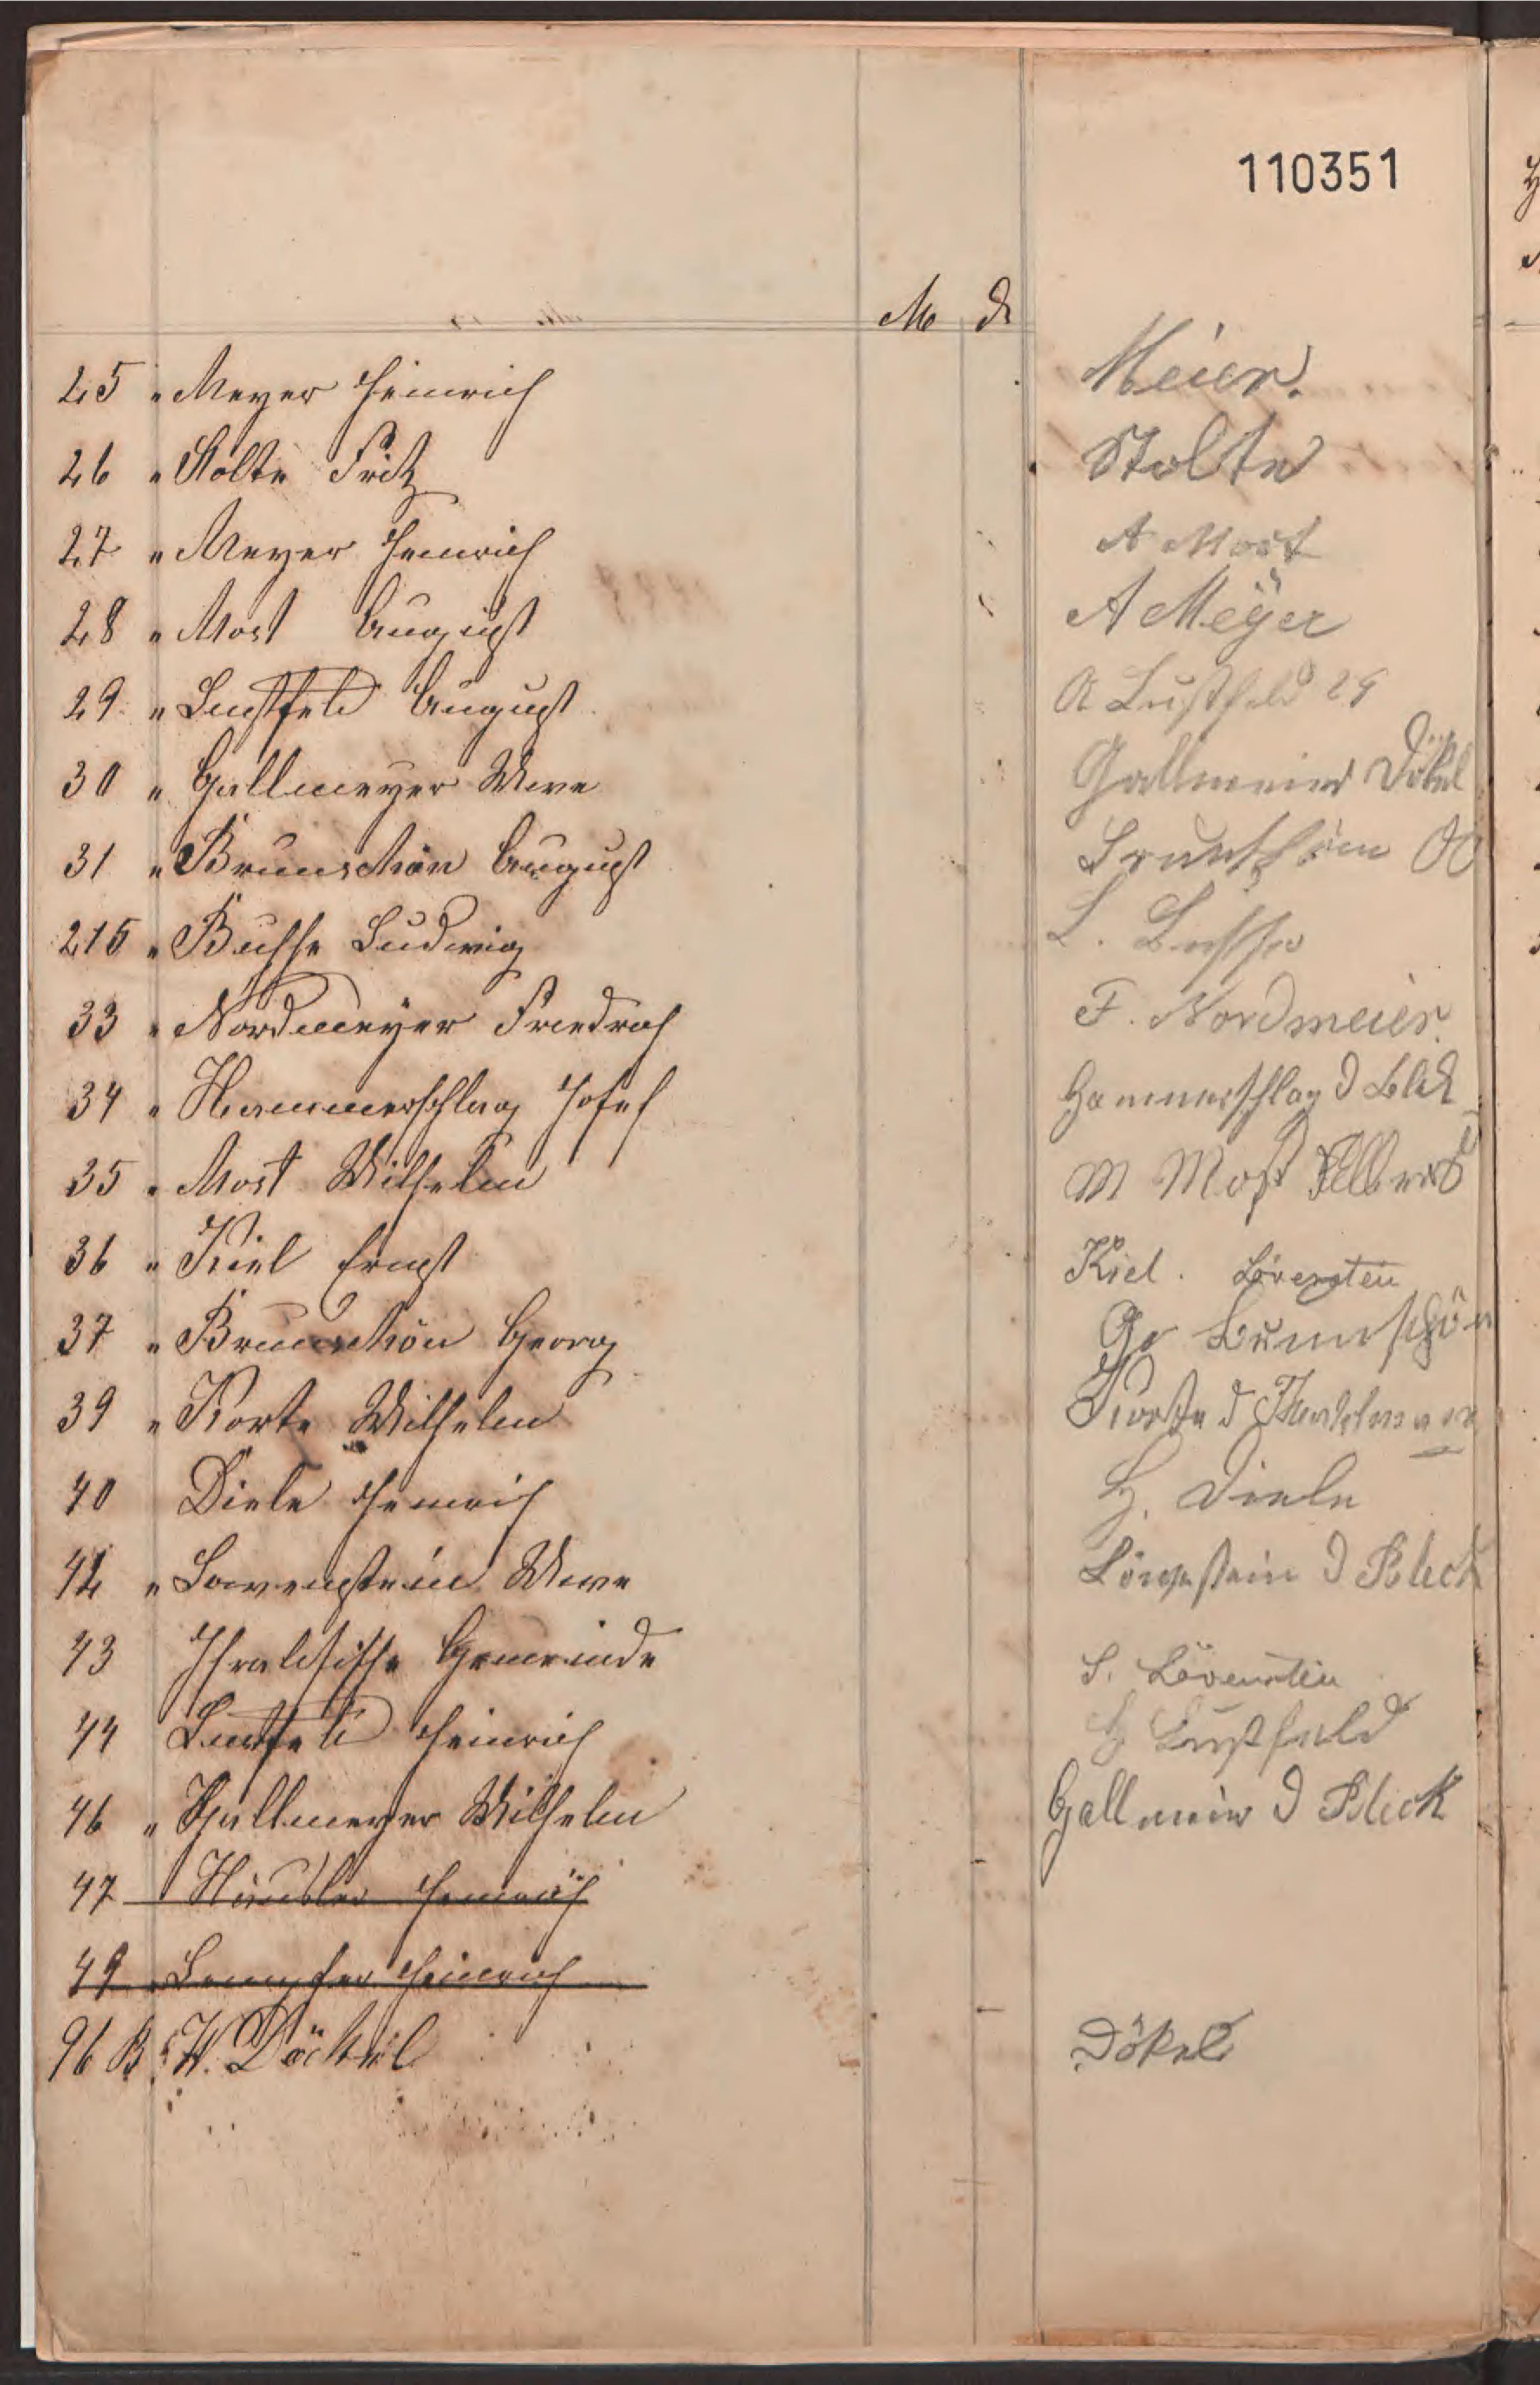 110351
M ₰
25 " Meyer Heinrich Meier.
26 " Stolte Fritz Stolte
27 " Meyer Heinrich A Most
28 " Most August A Meÿer
29 " Lustfeld August A Lustfeld 29
30 " Gallmeyer Wwe Gallmeier Dökel
31 " Brunschön August Brunschön
215 " Busse Ludwig L. Busse
33 " Nordmeyer Friedrich F. Nordmeier.
34 " Hammerschlag Josef Hammerschlag d Blek
35 " Most Wilhelm M Most
36 " Kiel Ernst Kiel. Lövenstein
37 " Brunschön Georg Ge Brunschön
39 " Korte Wilhelm Korte d
40 Diele Heinrich H. Diele
42 " Lowenstein Wwe Löwenstein d Bleck
43 Israelitische Gemeinde S. Lövenstein
44 Lustfeld Heinrich H Lustfeld
46 " Gallmeyer Wilhelm Gallmeier d Bleck
47 Heinrich
49 " Heinrich
96 B " W. Döckel Dökel